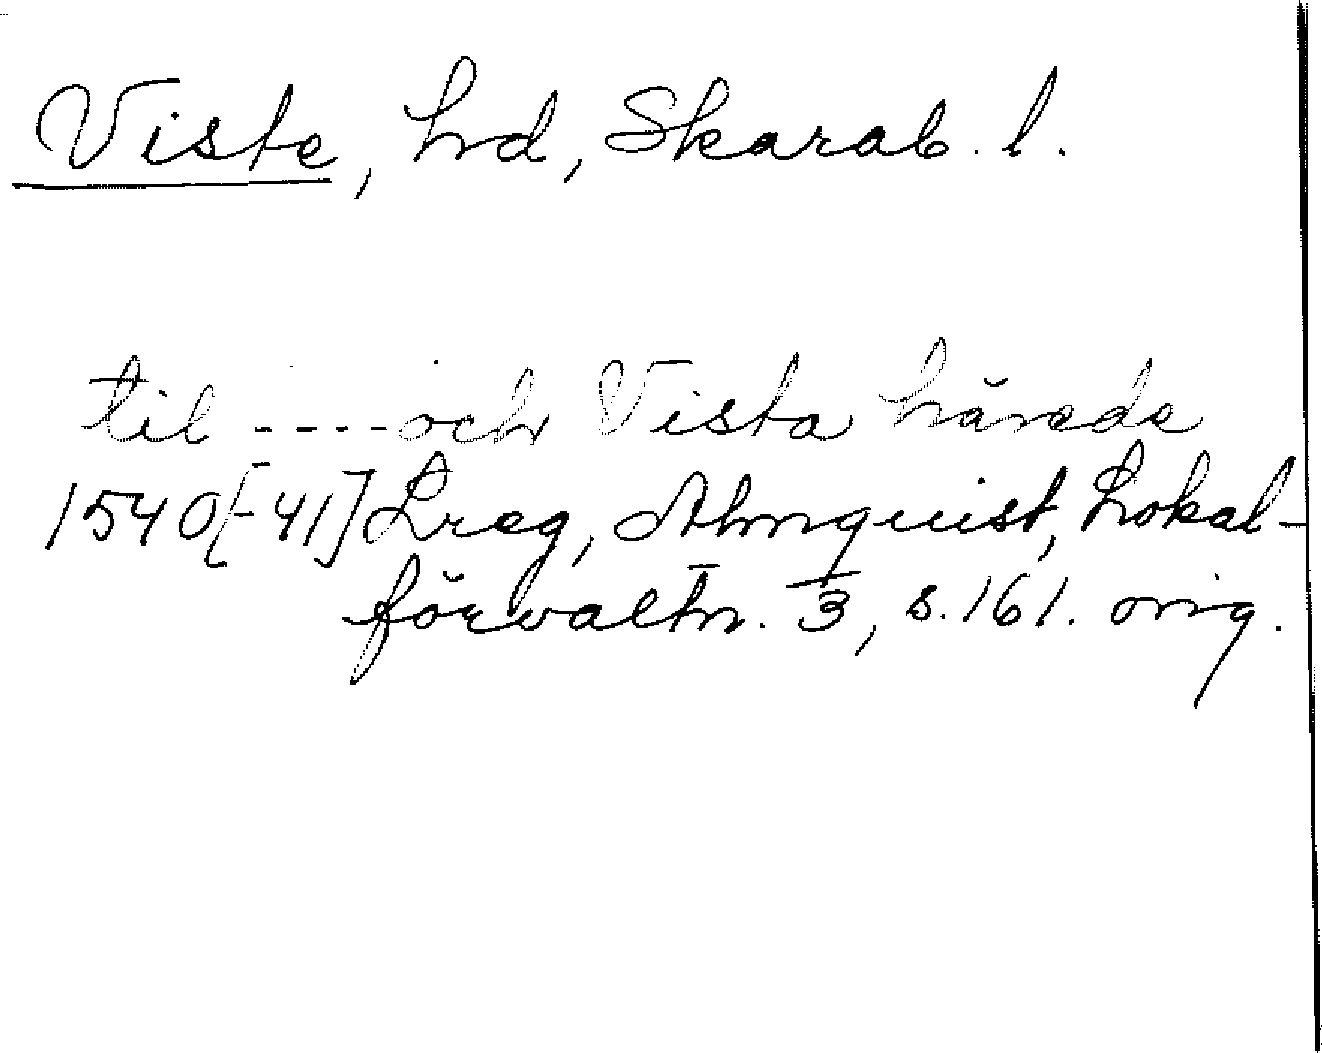 Viste, hd, Skarab. l.
til ---- och Vista härede
1540[-41] Lreg, Almquist, Lokal-
förvaltn. 3, s. 161. orig.